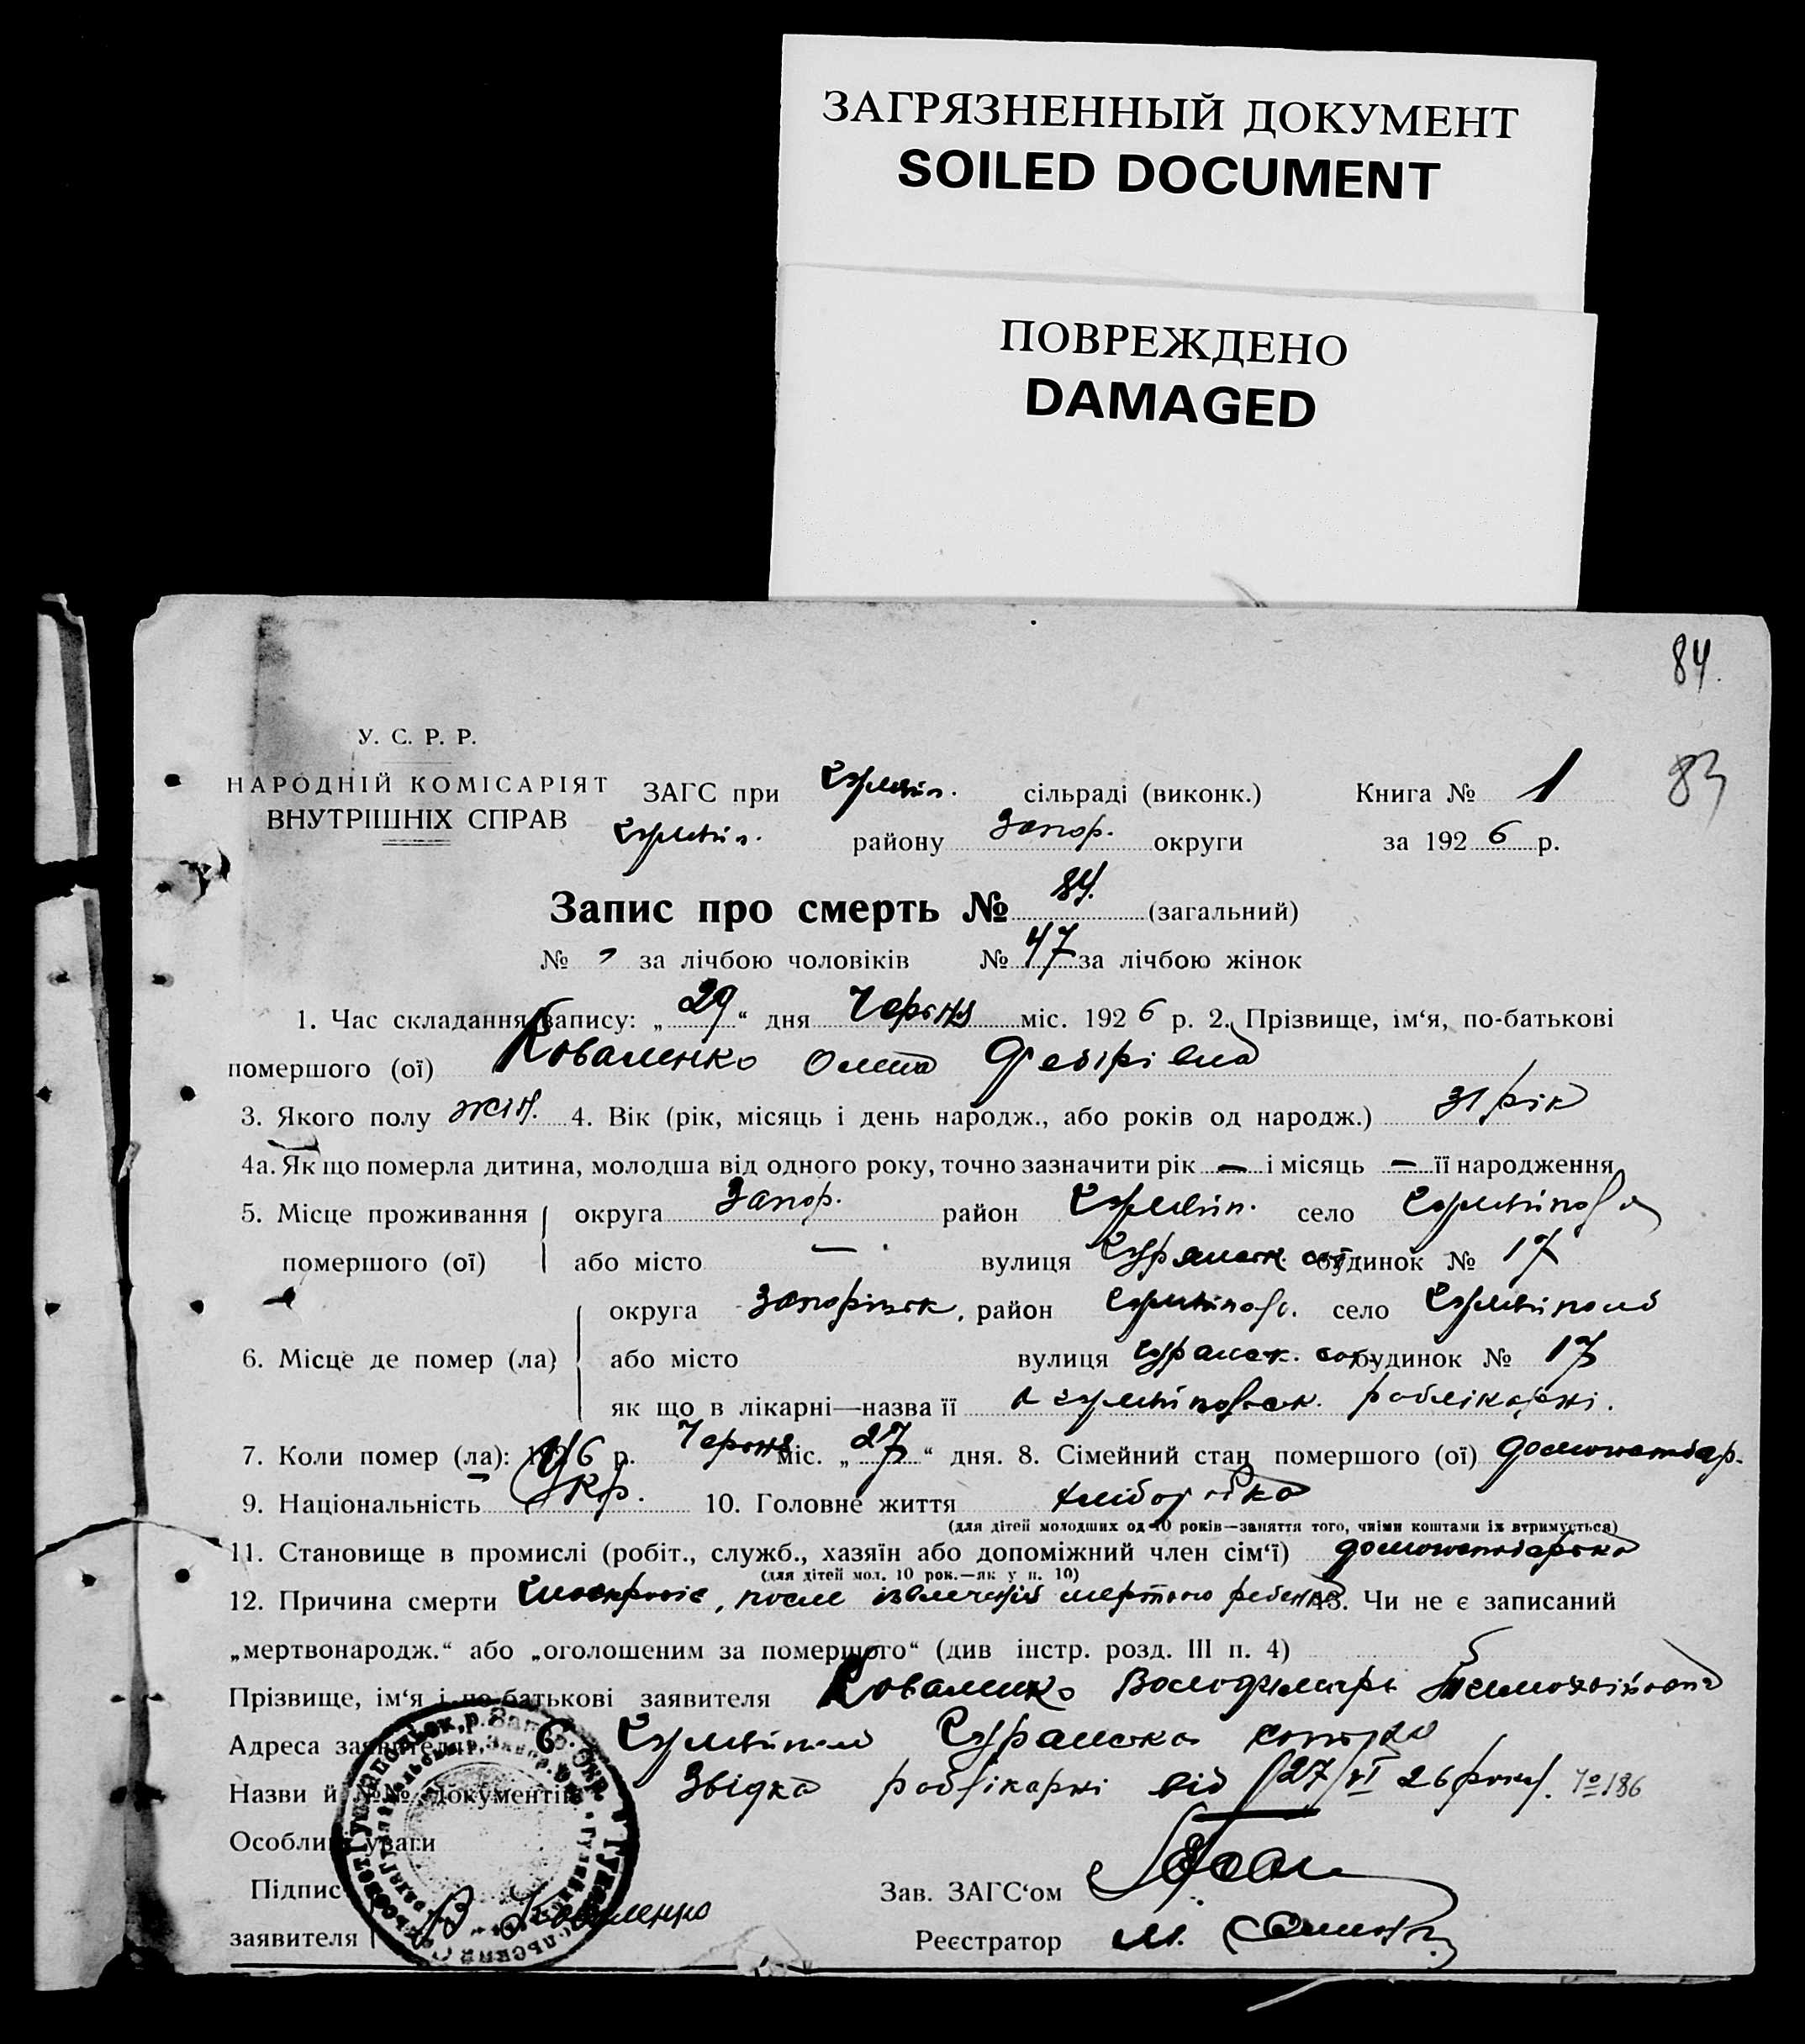 ЗАГРЯЗНЕННЫЙ ДОКУМЕНТ
SOILED DOCUMENT
ПОВРЕЖДЕНО
DAMAGED
84.
83
У. С. Р. Р.
НАРОДНІЙ КОМІСАРІЯТ
ВНУТРІШНІХ СПРАВ
ЗАГС при Гуляйп. сільраді (виконк.) Книга № 1
Гуляйп. району Запор. округи за 1926 р.
Запис про смерть № 84. (загальний)
№ за лічбою чоловіків № 47 за лічбою жінок
1. Час складання запису: „29“ дня Червня міс. 1926 р. 2. Прізвище, ім‘я, по-батькові
помершого (ої) Коваленко
3. Якого полу жін. 4. Вік (рік, місяць і день народж., або років од народж.) 31 рік
4а. Як що померла дитина, молодша від одного року, точно зазначити рік — і місяць — її народження
5. Місце проживання округа Запор. район Гуляйп. село Гуляйполе
помершого (ої) або місто — вулиця будинок № 17
округа Запоріжск. район Гуляйпол. село Гуляйполе
6. Місце де помер (ла) або місто вулиця будинок № 17
як що в лікарні—назва її в Гуляйпольск. робліکарні.
7. Коли помер (ла): 1926 р. Червня міс. „27“ дня. 8. Сімейний стан помершого (ої)
9. Національність Укр. 10. Головне життя хліборобка
(для дітей молодших од 10 років—заняття того, чиїми коштами їх втримується)
11. Становище в промислі (робіт., служб., хазяїн або допоміжний член сім‘ї)
(для дітей мол. 10 рок.—як у п. 10)
12. Причина смерти после извлечения мертвого ребенка 13. Чи не є записаний
„мертвонародж.“ або „оголошеним за померщого“ (див інстр. розд. III п. 4)
Прізвище, ім‘я і по-батькові заявителя Коваленко Володимирь
Адреса заявителя с. Гуляйполе
Назви й №№ документів Звідка роблікарні від 27/VI 26 року. № 186
Особливі уваги
Підпис Зав. ЗАГС‘ом
заявителя В Коваленко Реєстратор М.